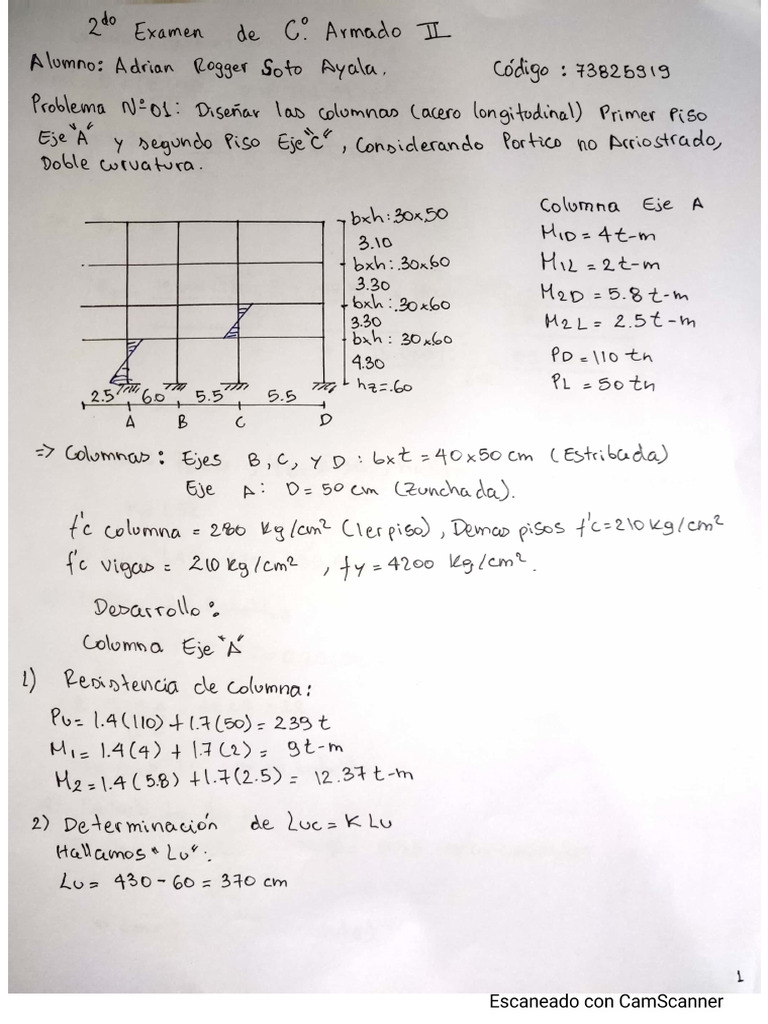 2do Examen de C.º Armado II
Alumno: Adrian Rogger Soto Ayala.
Código: 73825919
Problema Nº01: Diseñar las columnas (acero longitudinal) Primer Piso
Eje "A" y segundo Piso Eje "C", Considerando Portico no Arriostrado,
Doble curvatura.
bxh: 30x50
3.10
bxh: 30x60
3.30
bxh: 30x60
3.30
bxh: 30x60
4.30
hz=.60
2.5 6.0 5.5 5.5
A B C D
Columna Eje A
M1D = 4t-m
M1L = 2t-m
M2D = 5.8t-m
M2L = 2.5t-m
PD = 110 tn
PL = 50 tn
=> Columnas: Ejes B, C, y D: bxt = 40x50 cm (Estribada)
Eje A: D = 50 cm (Zunchada).
f'c columna = 280 kg/cm² (1er piso), Demas pisos f'c=210 kg/cm²
f'c vigas = 210 kg/cm², fy = 4200 kg/cm².
Desarrollo:
Columna Eje "A"
1) Resistencia de columna:
Pu = 1.4(110) + 1.7(50) = 239 t
M1 = 1.4(4) + 1.7(2) = 9t-m
M2 = 1.4(5.8) + 1.7(2.5) = 12.37t-m
2) Determinación de Luc = K Lu
Hallamos "Lu":
Lu = 430 - 60 = 370 cm
1
Escaneado con CamScanner